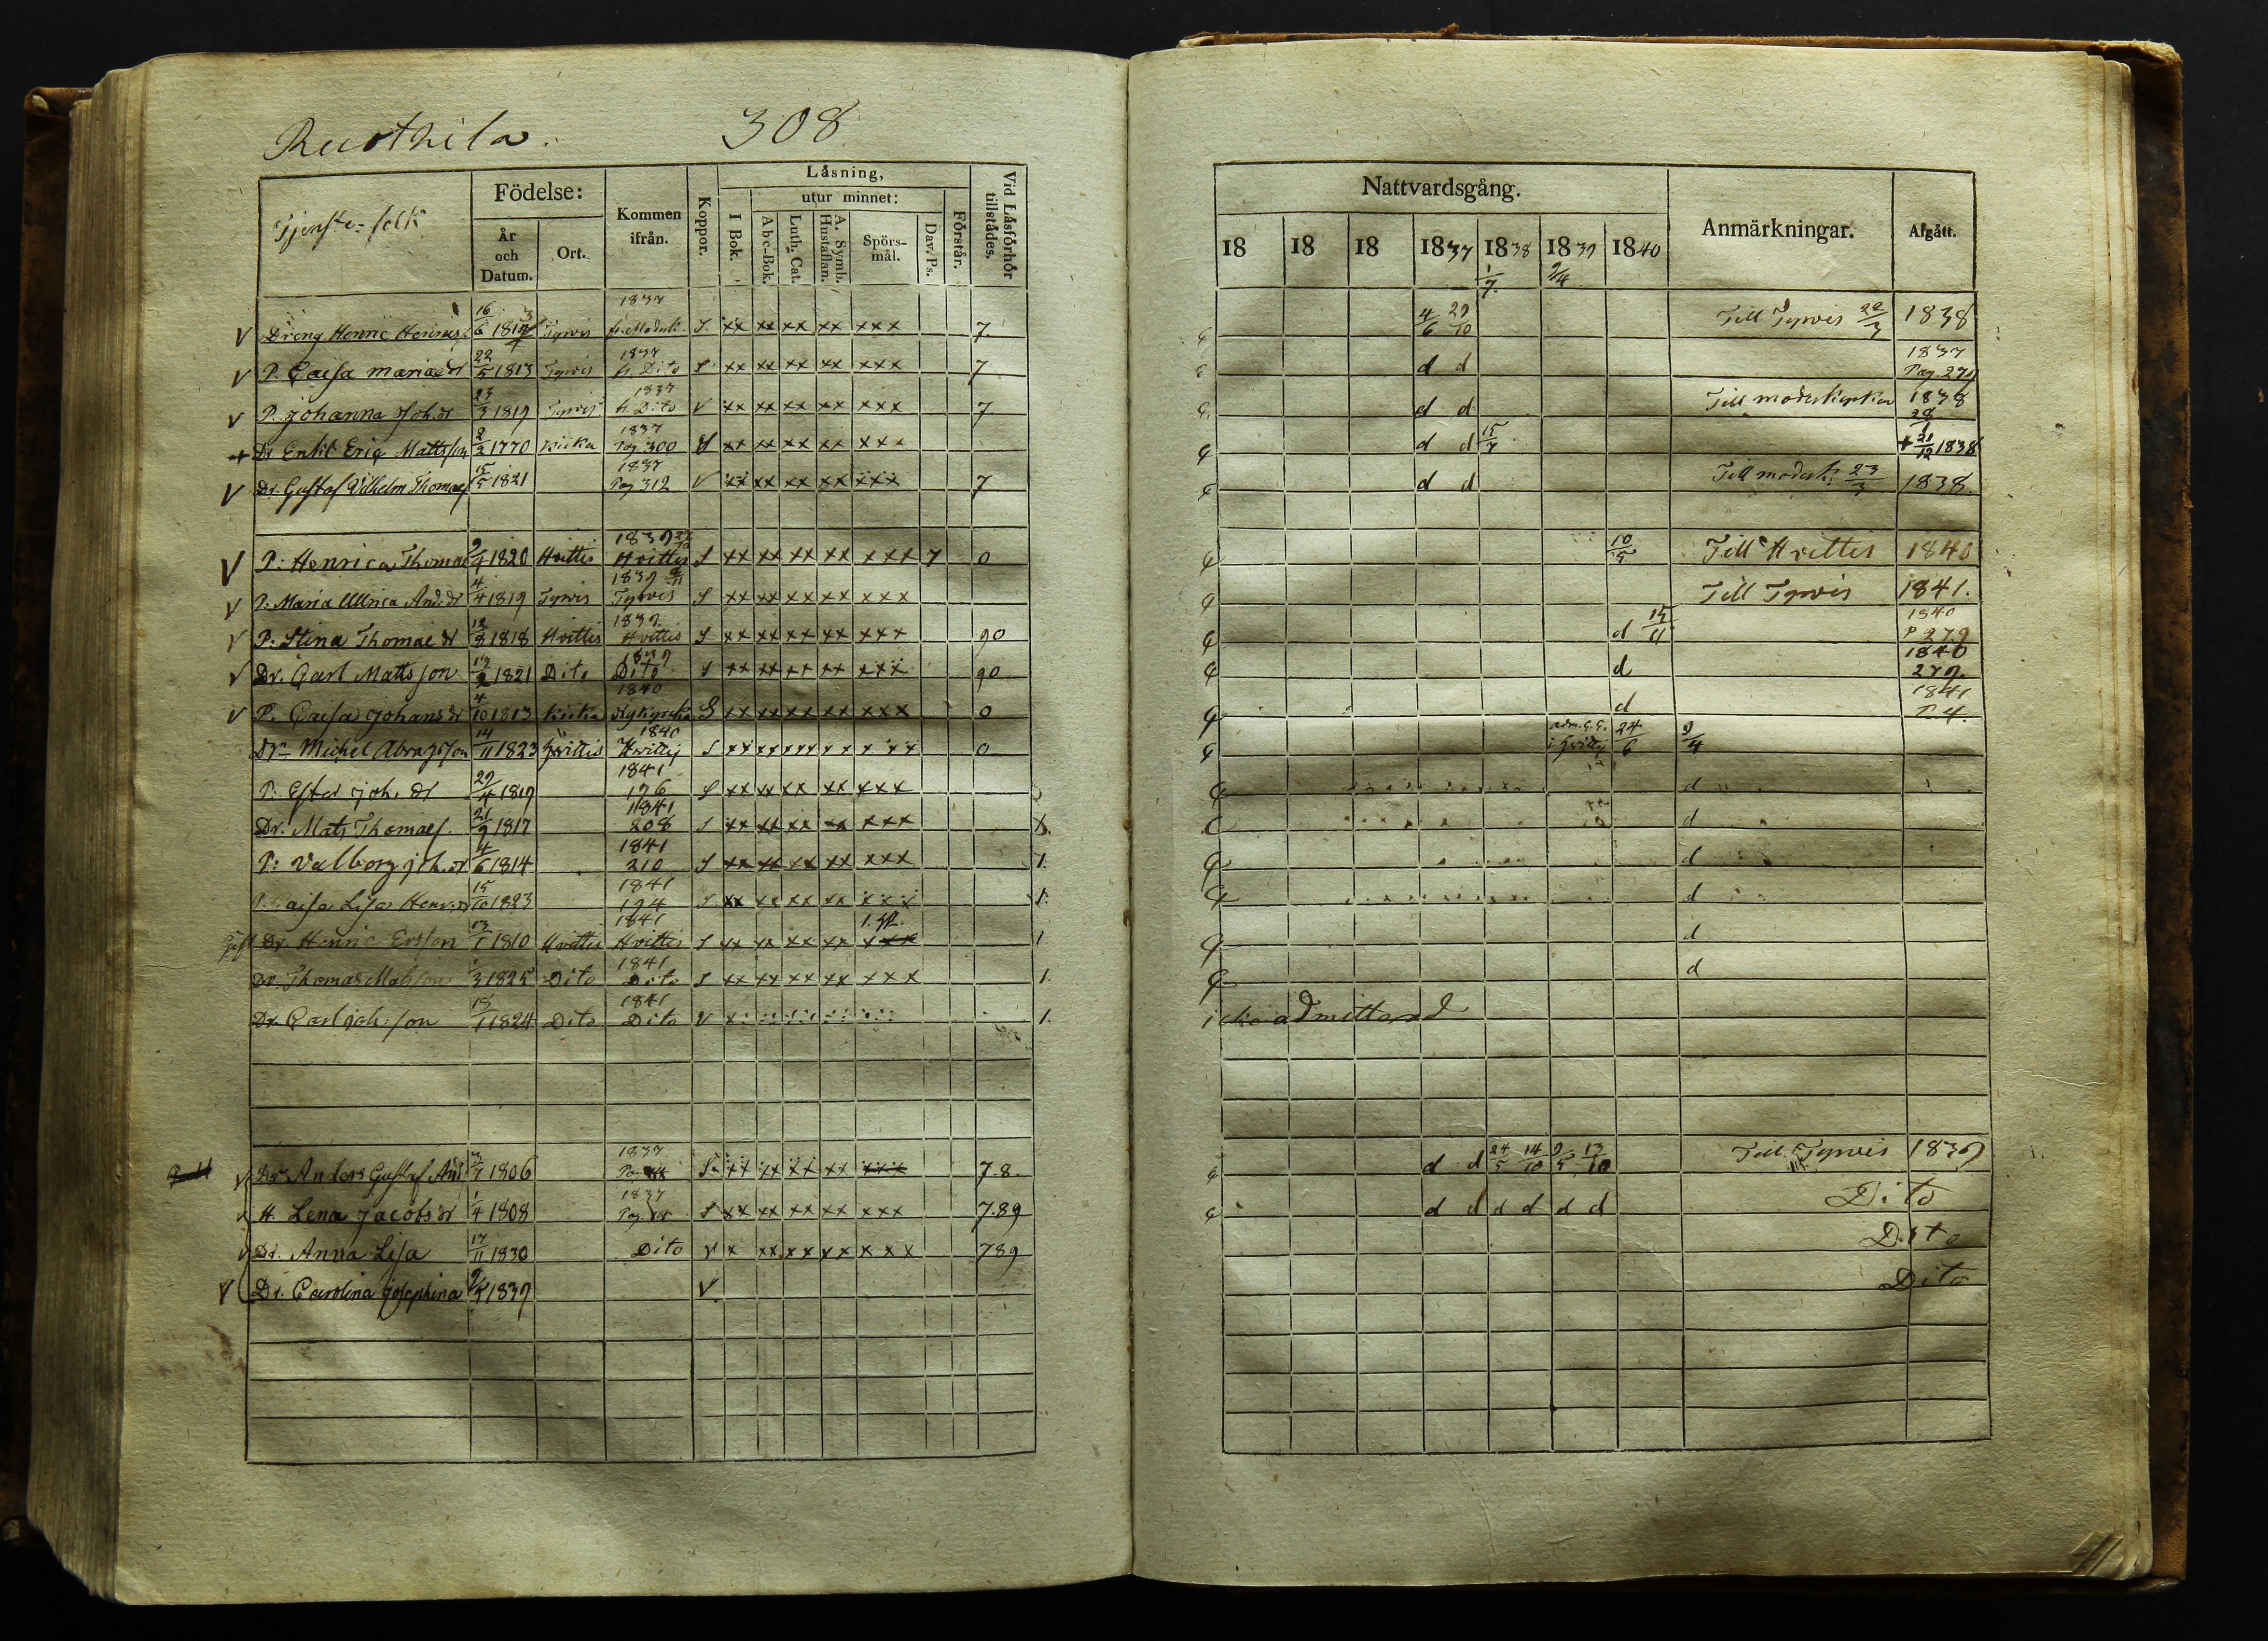 Rusthila. 308
Tjenste-folk
Födelse:
År och Datum.
Ort.
Kommen ifrån.
Koppor.
Läsning,
I Bok.
utur minnet:
Abc-Bok.
Luth. Cat.
A. Symb. Hustaflan.
Spörsmål.
Dav. Ps.
Förstår.
Vid Läsförhör tillstådes.
Nattvardsgång.
18 18 18 1837 1838 1/7. 1839 9/4 1840
Anmärkningar.
Afgått.
V Dreng Henric Henrics. 16/6 Tyrvis 1837 S. xx xx xx xx xxx 7. 4/6 29/10 Till Tyrvis 1838
V P. Caisa mariae dr 22/5 1813 Tyrvis 1837 fr. Dito S xx xx xx xx xxx 7 d d 1837 Pag. 279
V P. Johanna Joh. dr 23/3 1819 Tyrvis 1837 fr. Dito V xx xx xx xx xxx 7 d d Till moderkyrkan 1838
+ Dr Enkl Eric Mattsson 2/3 1770 Kiika 1837 Pag 300 xx xx xx xx xxx d d 15/7 + 21/12 1838
V Dr. Gustaf Vilhelm Thomas 15/5 1821 1837 Pag 312 V xx xx xx xx xxx 7 d d Till moderk. 23/3 1838.
V P: Henrica Thomae 9/4 1820 Hvittis 1839 Hvittis S xx xx xx xx xxx 7 0 10/5 Till Hvittis 1840
V P: Maria Ullrica And. dr 4/4 1819 Tyrvis 1839 Tyrvis S xx xx xx xx xxx Till Tyrvis 1841.
V P: Stina Thomae dr 1818 Hvittis 1839. Hvittis S xx xx xx xx xxx 90 d 15/11 1840 P 279
V Dr. Carl Mattsson 1821 Dito 1839 Dito S xx xx xx xx xxx 90 d 1840 279.
V P. Caisa Johans dr 4/10 1813 Kiika 1840 Nykyrka S xx xx xx xx xxx 0 d 1841 P. 4.
Dr Michel Abrahsson 14/11 1823 Hvittis 1840 Hvittis S xx xx xx xx xxx 0 i Hvittis 24/6 9/4
P: Ester Joh. dr 29/4 1819 1841 196 S xx xx xx xx xxx d
Dr. Mats Thomas. 21/9 1817 1841 208 S xx xx xx xx xxx d
P: Valborg Joh. dr 4/6 1814 1841 210 S xx xx xx xx xxx 1. d
P. Caisa Lisa Henr. dr 15/10 1823 1841 194 S xx xx xx xx xxx 1. d
Gift Dr. Henric Ersson 13/1 1810 Hvittis 1841 Hvittis S xx xx xx xx xxx 1 d
Dr. Thomas Matsson 1/3 1825 Dito 1841 Dito S xx xx xx xx xxx 1. d
Dr. Carl Joh:son 1824 Dito 1841 Dito V 1. icke admitterad
V Dr Anders Gustaf And 3/7 1806 1837 S. xx xx xx xx xxx 7.8. d d 24/5 14/10 9/5 13/10 Till Tyrvis 1839
H. Lena Jacobs dr 1/4 1808 1837 S xx xx xx xx xxx 7.89 d d d d d d Dito
Dr. Anna Lisa 17/11 1830 Dito V x xx xx xx xxx 789 Dito
V Dr. Carolina Josephina 1839 V Dito